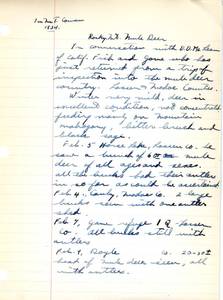 1934.
Rocky Mt. Mule Deer
In conversation with D.D. McLean
of Calif. Fish and Game who has
just returned from a trip of
inspection into the mule deer
country, Lassen - Modoc Counties.
Winter very mild, deer in
excellent condition, not concentrated
feeding mainly on mountain
mahogany, bitter brush and
black sage.
Feb. 5 Horse Lake, Lassen Co. he
saw a bunch of 60 mule
deer of all ages and sexes
all the bucks had their antlers
in so far as could be ascertained
Feb 4, Modoc Co. 2 large
bucks seen with one antler
shed.
Feb 7, game refuge 1 Q Lassen
Co. all bucks still with
antlers
Feb. 9, Doyle Co. 20-30
head of mule deer seen, all
with antlers.